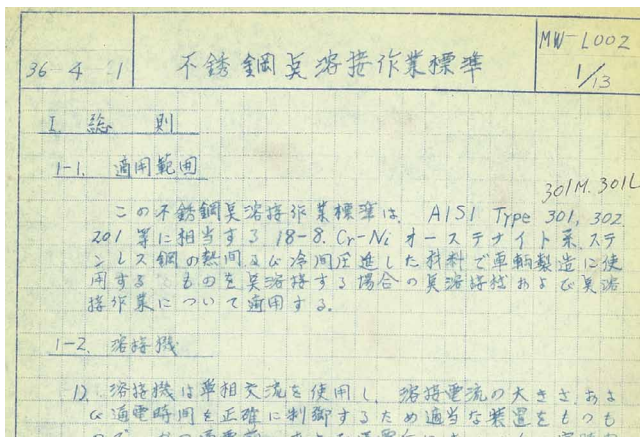 36 4 1
不銹鋼点溶接作業標準
MW-L002
1/13
I. 総 則
1-1. 適用範囲
301M. 301L
この不銹鋼点溶接作業標準は、AISI Type 301, 302.
201 等に相当する 18-8. Cr-Ni オーステナイト系、ステ
ンレス鋼の熱間及び冷間圧進した料料で車輌製造に使
用する ものを点溶接する場合の点溶接機および点溶
接作業について適用する。
1-2. 溶接機
1). 溶接機は単相交流を使用し、溶接電流の大きさ、およ
び通電時間を正確に制御するため適当な装置をもつも